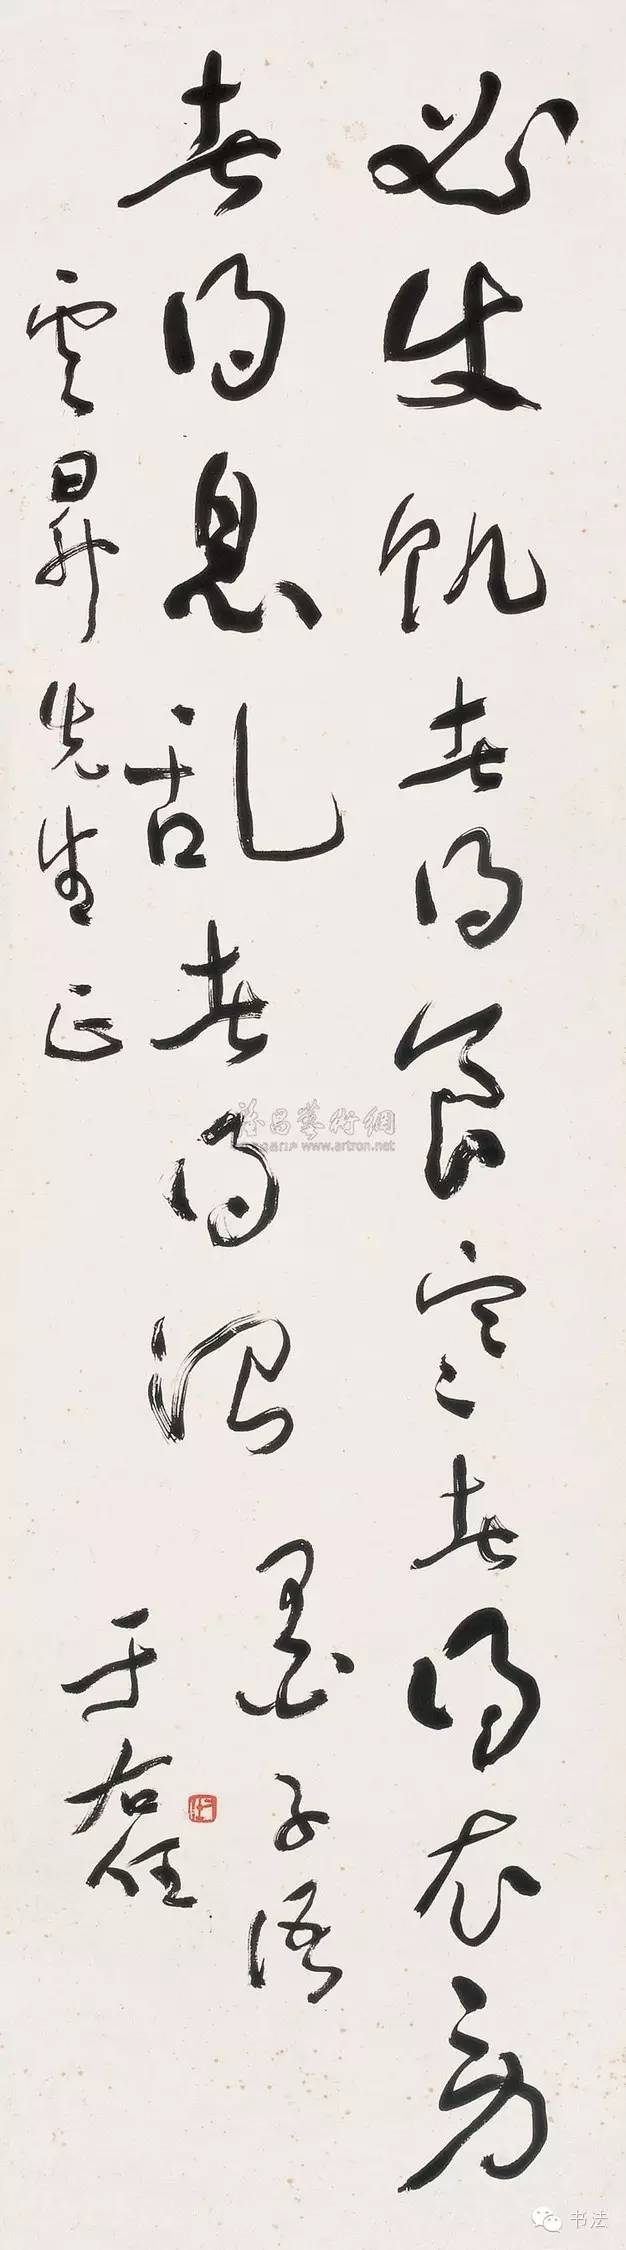 必使飢者得食寒者得衣勞
者得息乱者得治
墨子語
雲昇先生正
于右任
雅昌藝術網
www.artron.net
书法